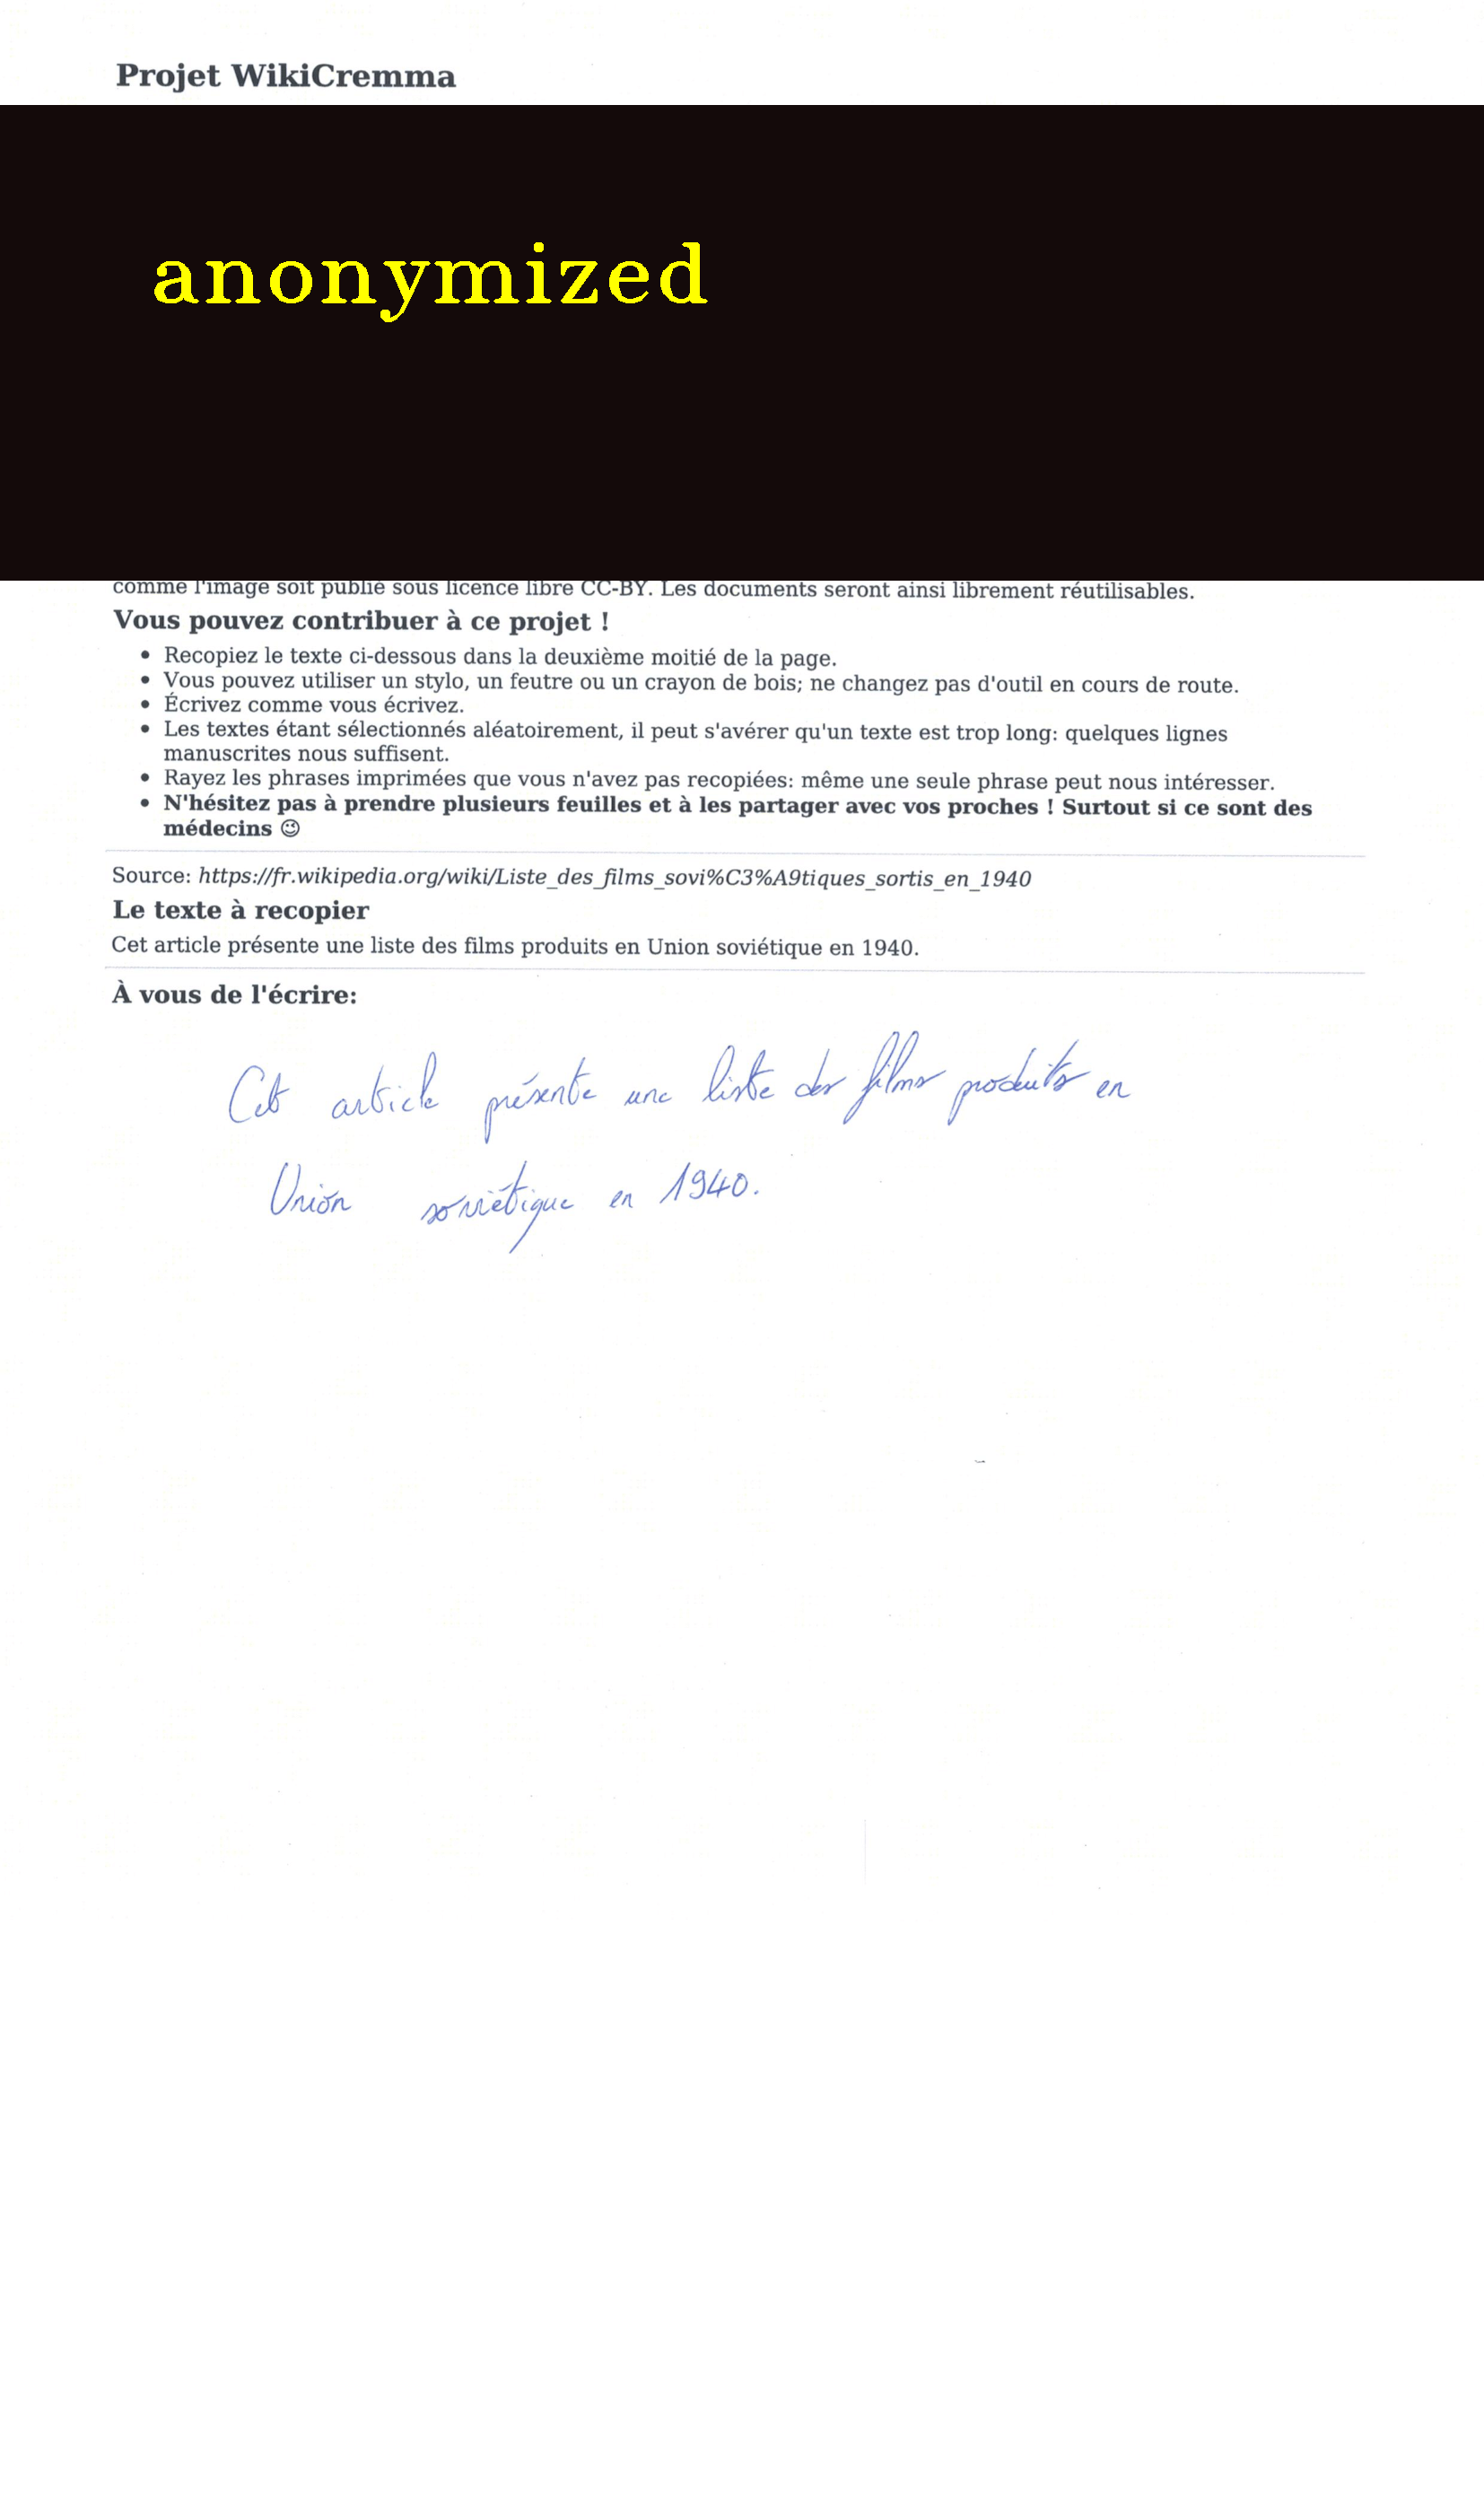 Projet WikiCremma
anonymized
comme l'image soit publié sous licence libre CC-BY. Les documents seront ainsi librement réutilisables.
Vous pouvez contribuer à ce projet !
• Recopiez le texte ci-dessous dans la deuxième moitié de la page.
• Vous pouvez utiliser un stylo, un feutre ou un crayon de bois; ne changez pas d'outil en cours de route.
• Écrivez comme vous écrivez.
• Les textes étant sélectionnés aléatoirement, il peut s'avérer qu'un texte est trop long: quelques lignes
manuscrites nous suffisent.
• Rayez les phrases imprimées que vous n'avez pas recopiées: même une seule phrase peut nous intéresser.
• N'hésitez pas à prendre plusieurs feuilles et à les partager avec vos proches ! Surtout si ce sont des
médecins ☺
Source: https://fr.wikipedia.org/wiki/Liste_des_films_sovi%C3%A9tiques_sortis_en_1940
Le texte à recopier
Cet article présente une liste des films produits en Union soviétique en 1940.
À vous de l'écrire:
Cet article présente une liste des films produits en
Union soviétique en 1940.